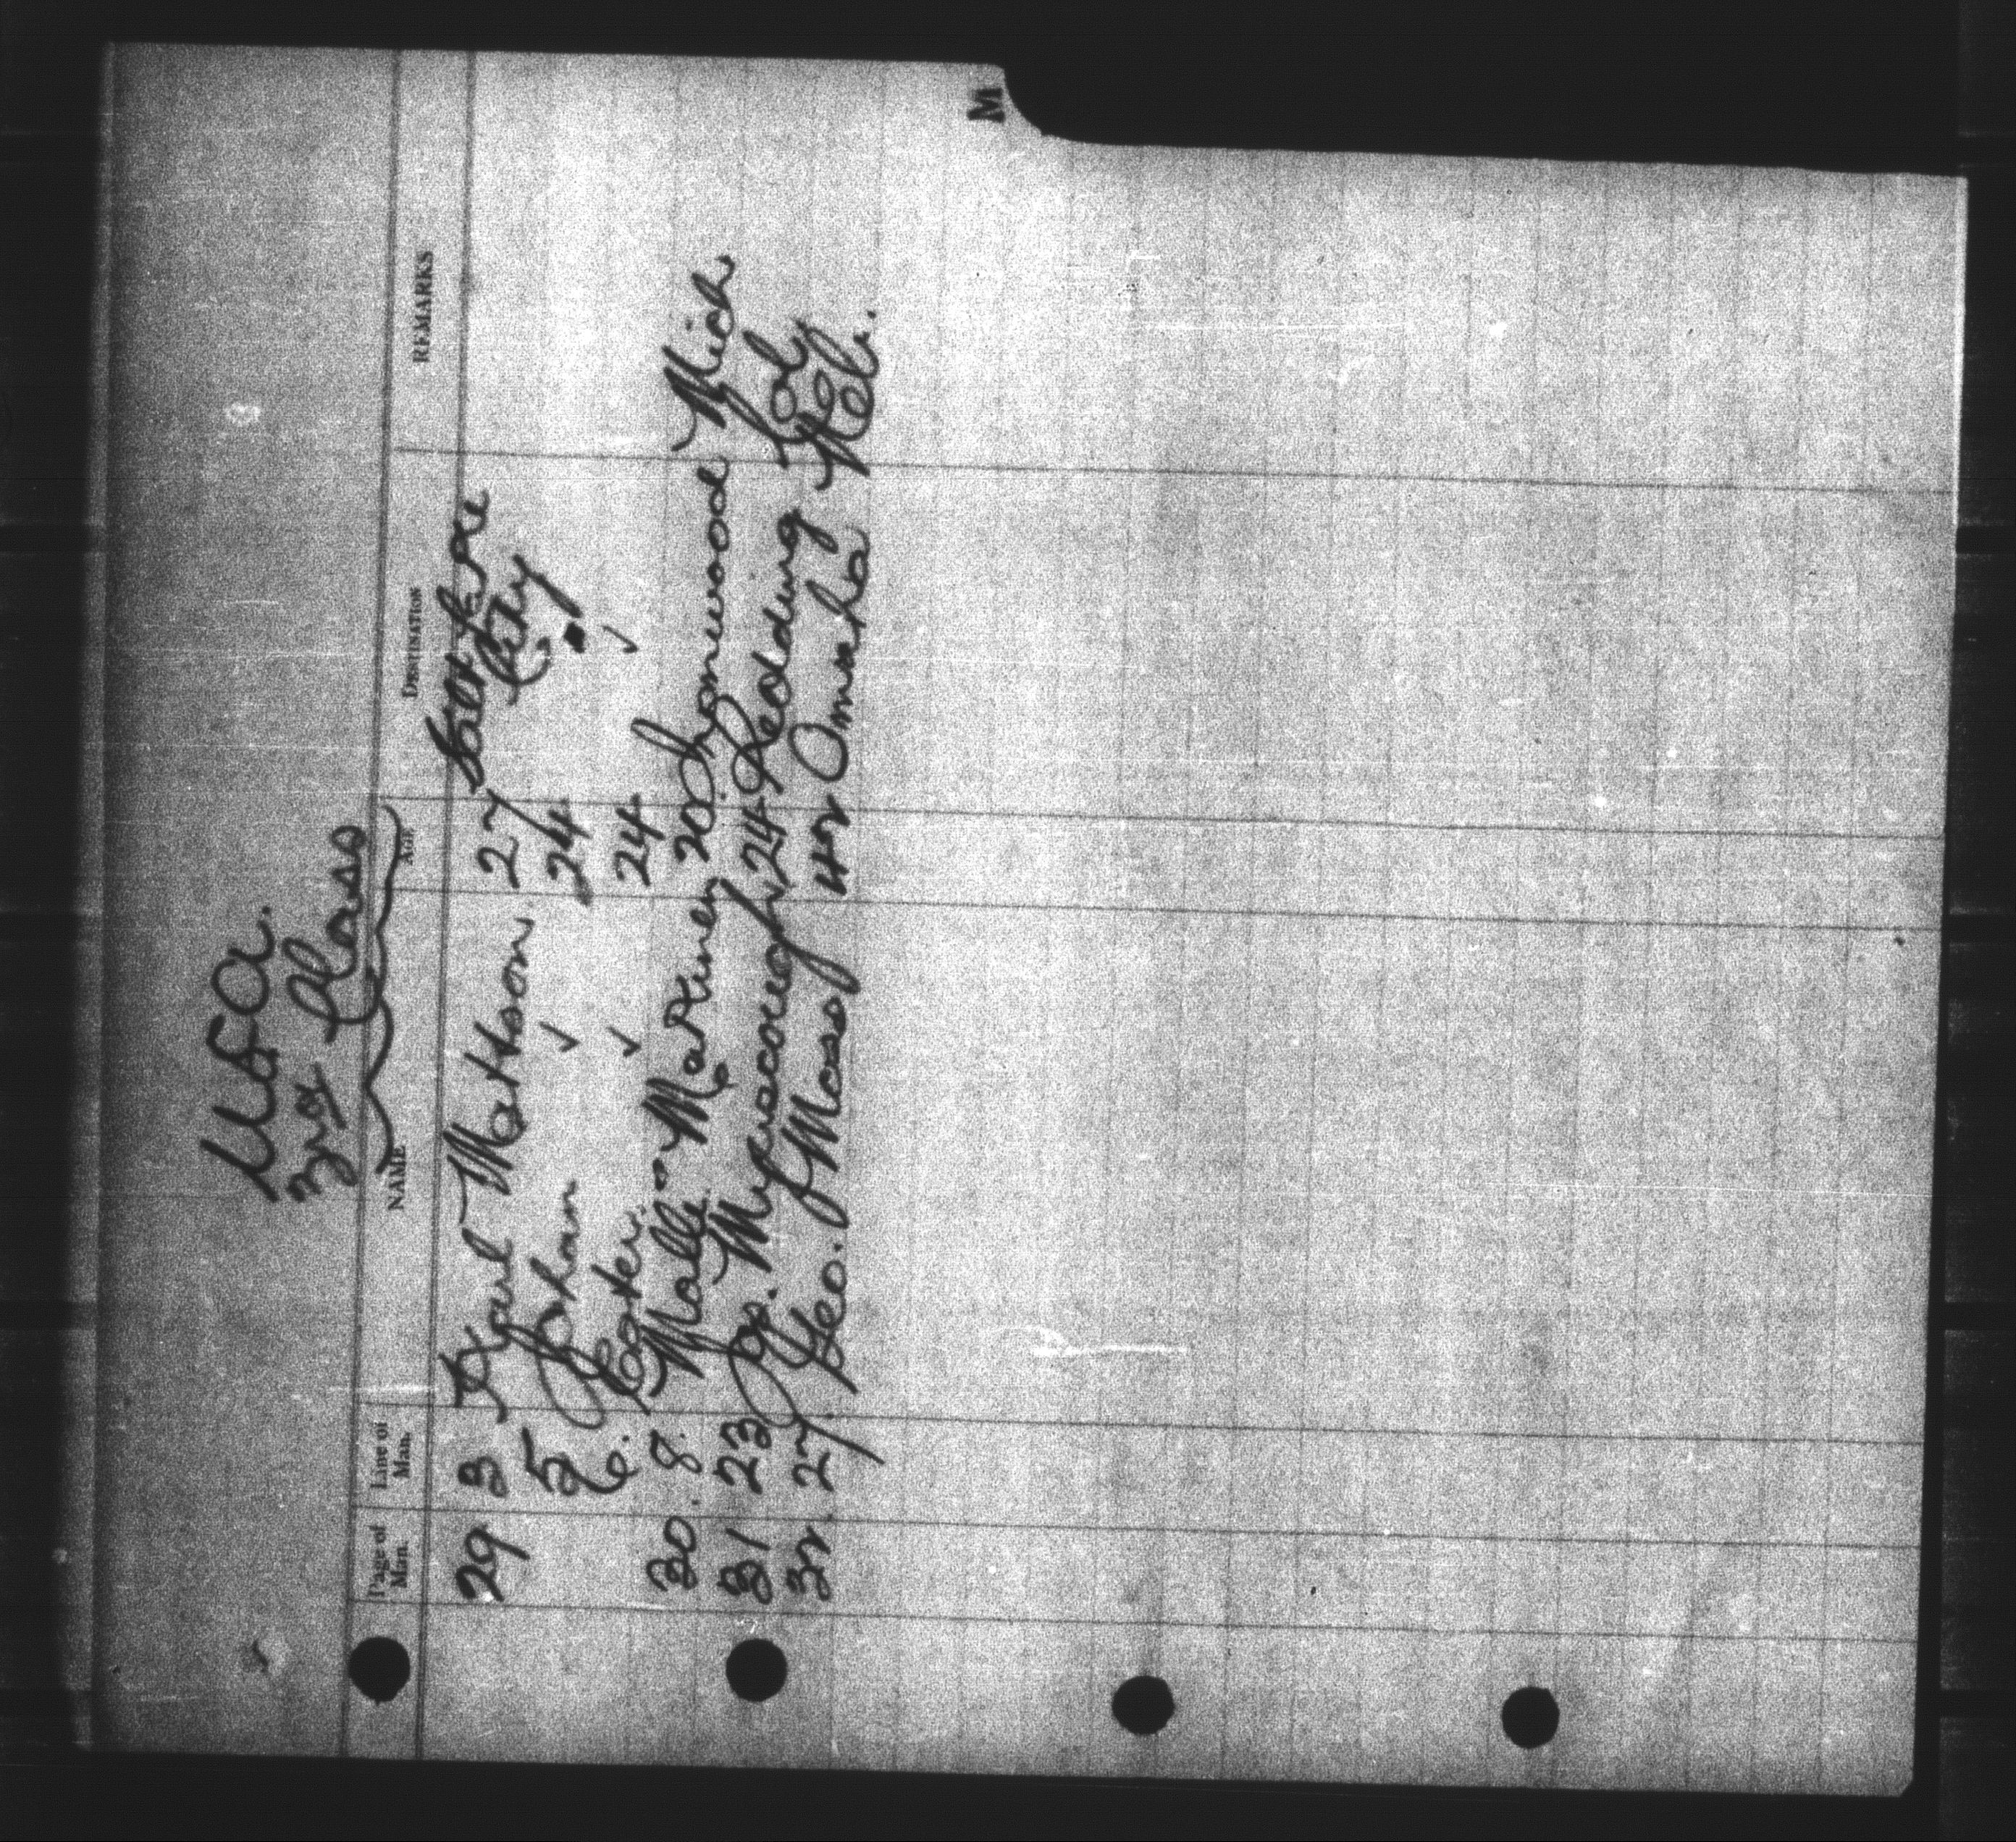 M
U S A.
3rd Class
Page of Man. Line of Man. NAME AGE DESTINATION REMARKS
29 3 Karl Mattson 27 Salt Lake City
5 Johan ✓ 24 "
6. Ester ✓ 24 ✓
30. 8. Malle Martinen 20 Ironwood Mich
31 23 Jos. 24 Redding Cal
32 27 Geo. J Moss 42 Omaha Neb.